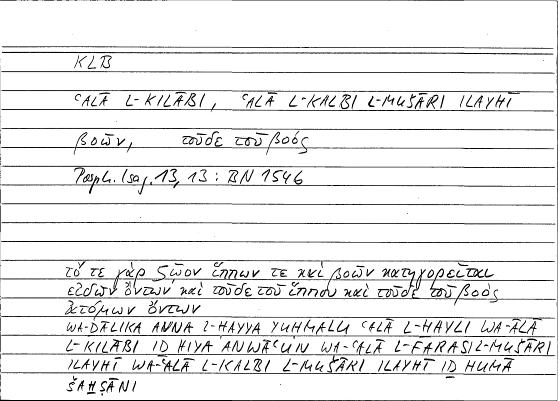 KLB
ʿALĀ L-KILĀBI, ʿALĀ L-KALBI L-MUŠĀRI ILAYHĪ
βοῶν, τοῦδε τοῦ βοός
Porph. Isag. 13, 13 : BN 1546
τό τε γὰρ ζῷον ἵππων τε καὶ βοῶν κατηγορεῖται
εἰδῶν ὄντων καὶ τοῦδε τοῦ ἵππου καὶ τοῦδε τοῦ βοός
ἀτόμων ὄντων
WA-ḎĀLIKA ANNA L-ḤAYYA YUḤMALU ʿALĀ L-ḪAYLI WA-ʿALĀ
L-KILĀBI IḎ HIYA ANWĀʿUN WA-ʿALĀ L-FARASI L-MUŠĀRI
ILAYHI WA-ʿALĀ L-KALBI L-MUŠĀRI ILAYHĪ IḎ HUMĀ
ŠAḪṢĀNI